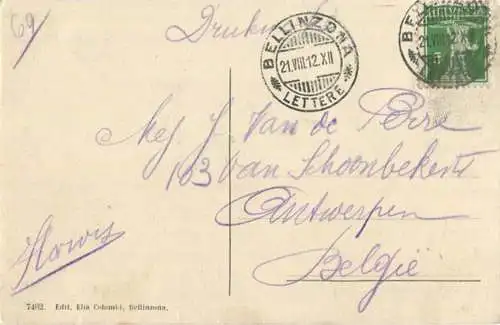 69
Drukw
BELLINZONA
21.VIII.12.XII
LETTERE
BELLINZONA
21.VIII.12.XII
Mej J. Van de Perre
103 Van Schoonbekestr
Antwerpen
België
7462. Edit. Elia Colombi, Bellinzona.